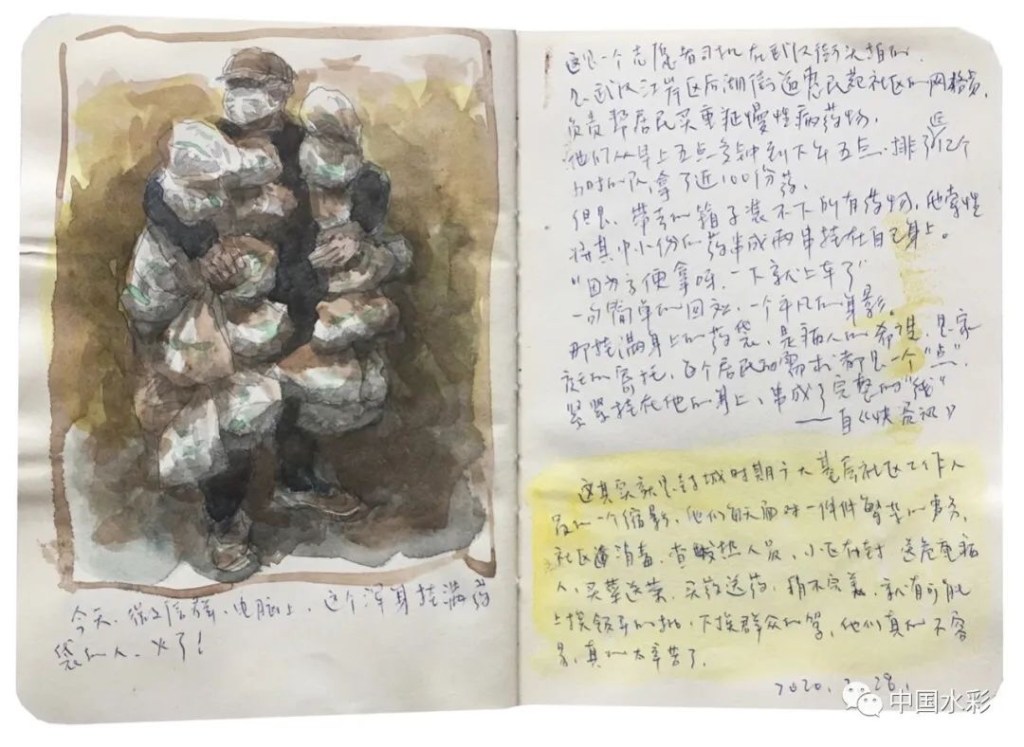 今天、微信群、电脑上，这个浑身挂满药
袋的人、火了！
这是一个志愿者司机在武汉街头拍的
是武汉江岸区后湖街道惠民苑社区的网格员，
负责帮居民买重症慢性病药物，
他们从早上五点多钟到下午五点、排了近12个
小时的队，拿了近100份药。
但是、带去的箱子装不下所有药物，他索性
将其中小份的药串成两串挂在自己身上。
“因为方便拿呀，一下就上车了”
一句简单的回应，一个平凡的身影。
那挂满身上的药袋，是病人的希望，是家
庭的寄托，每个居民的需求都是一个“点”，
紧紧挂在他的身上、串成了完整的“线”
——自《快资讯》
这其实就是封城时期广大基层社区工作人
员的一个缩影，他们每天面对一件件繁杂的事务，
社区消毒，查酸热人员，小区有封，送危重病
人，买菜送菜、买药送药，稍不完美，就有可能
上挨领导的批，下挨群众的骂，他们真的不容
易，真的太辛苦了。
2020.2.28.
中国水彩